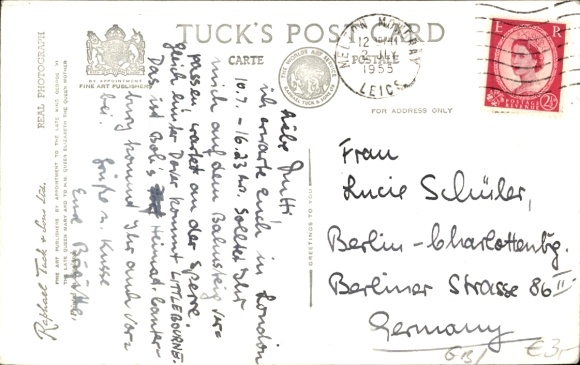 TUCK'S POST CARD
CARTE POSTALE
BY APPOINTMENT
FINE ART PUBLISHERS
THE WORLD'S ART SERVICE
RAPHAEL TUCK & SONS LTD
MELTON MOWBRAY
12
JLY
1955
LEICS
E R
POSTAGE REVENUE
2½D
FOR ADDRESS ONLY
REAL PHOTOGRAPH
FINE ART PUBLISHERS BY APPOINTMENT TO THE LATE KING GEORGE VI
THE LATE QUEEN MARY AND TO H.M. QUEEN ELIZABETH THE QUEEN MOTHER
Raphael Tuck & Sons Ltd.
GREETINGS TO YOU
Liebe Mutti!
ich erwarte euch in London
10.7. – 16.23 hr. Solltet Ihr
mich auf dem Bahnsteig ver-
passen, wartet an der Sperre.
Gleich hinter Dover kommt LITTLEBOURNE.
Das ist Bob's Heimat. Canter-
bury kommt Ihr auch vor-
bei.
Grüße u. Küsse
Eure
Frau
Lucie Schüler,
Berlin-Charlottenbg.
Berliner Strasse 86 II
Germany
GB/ €3,-